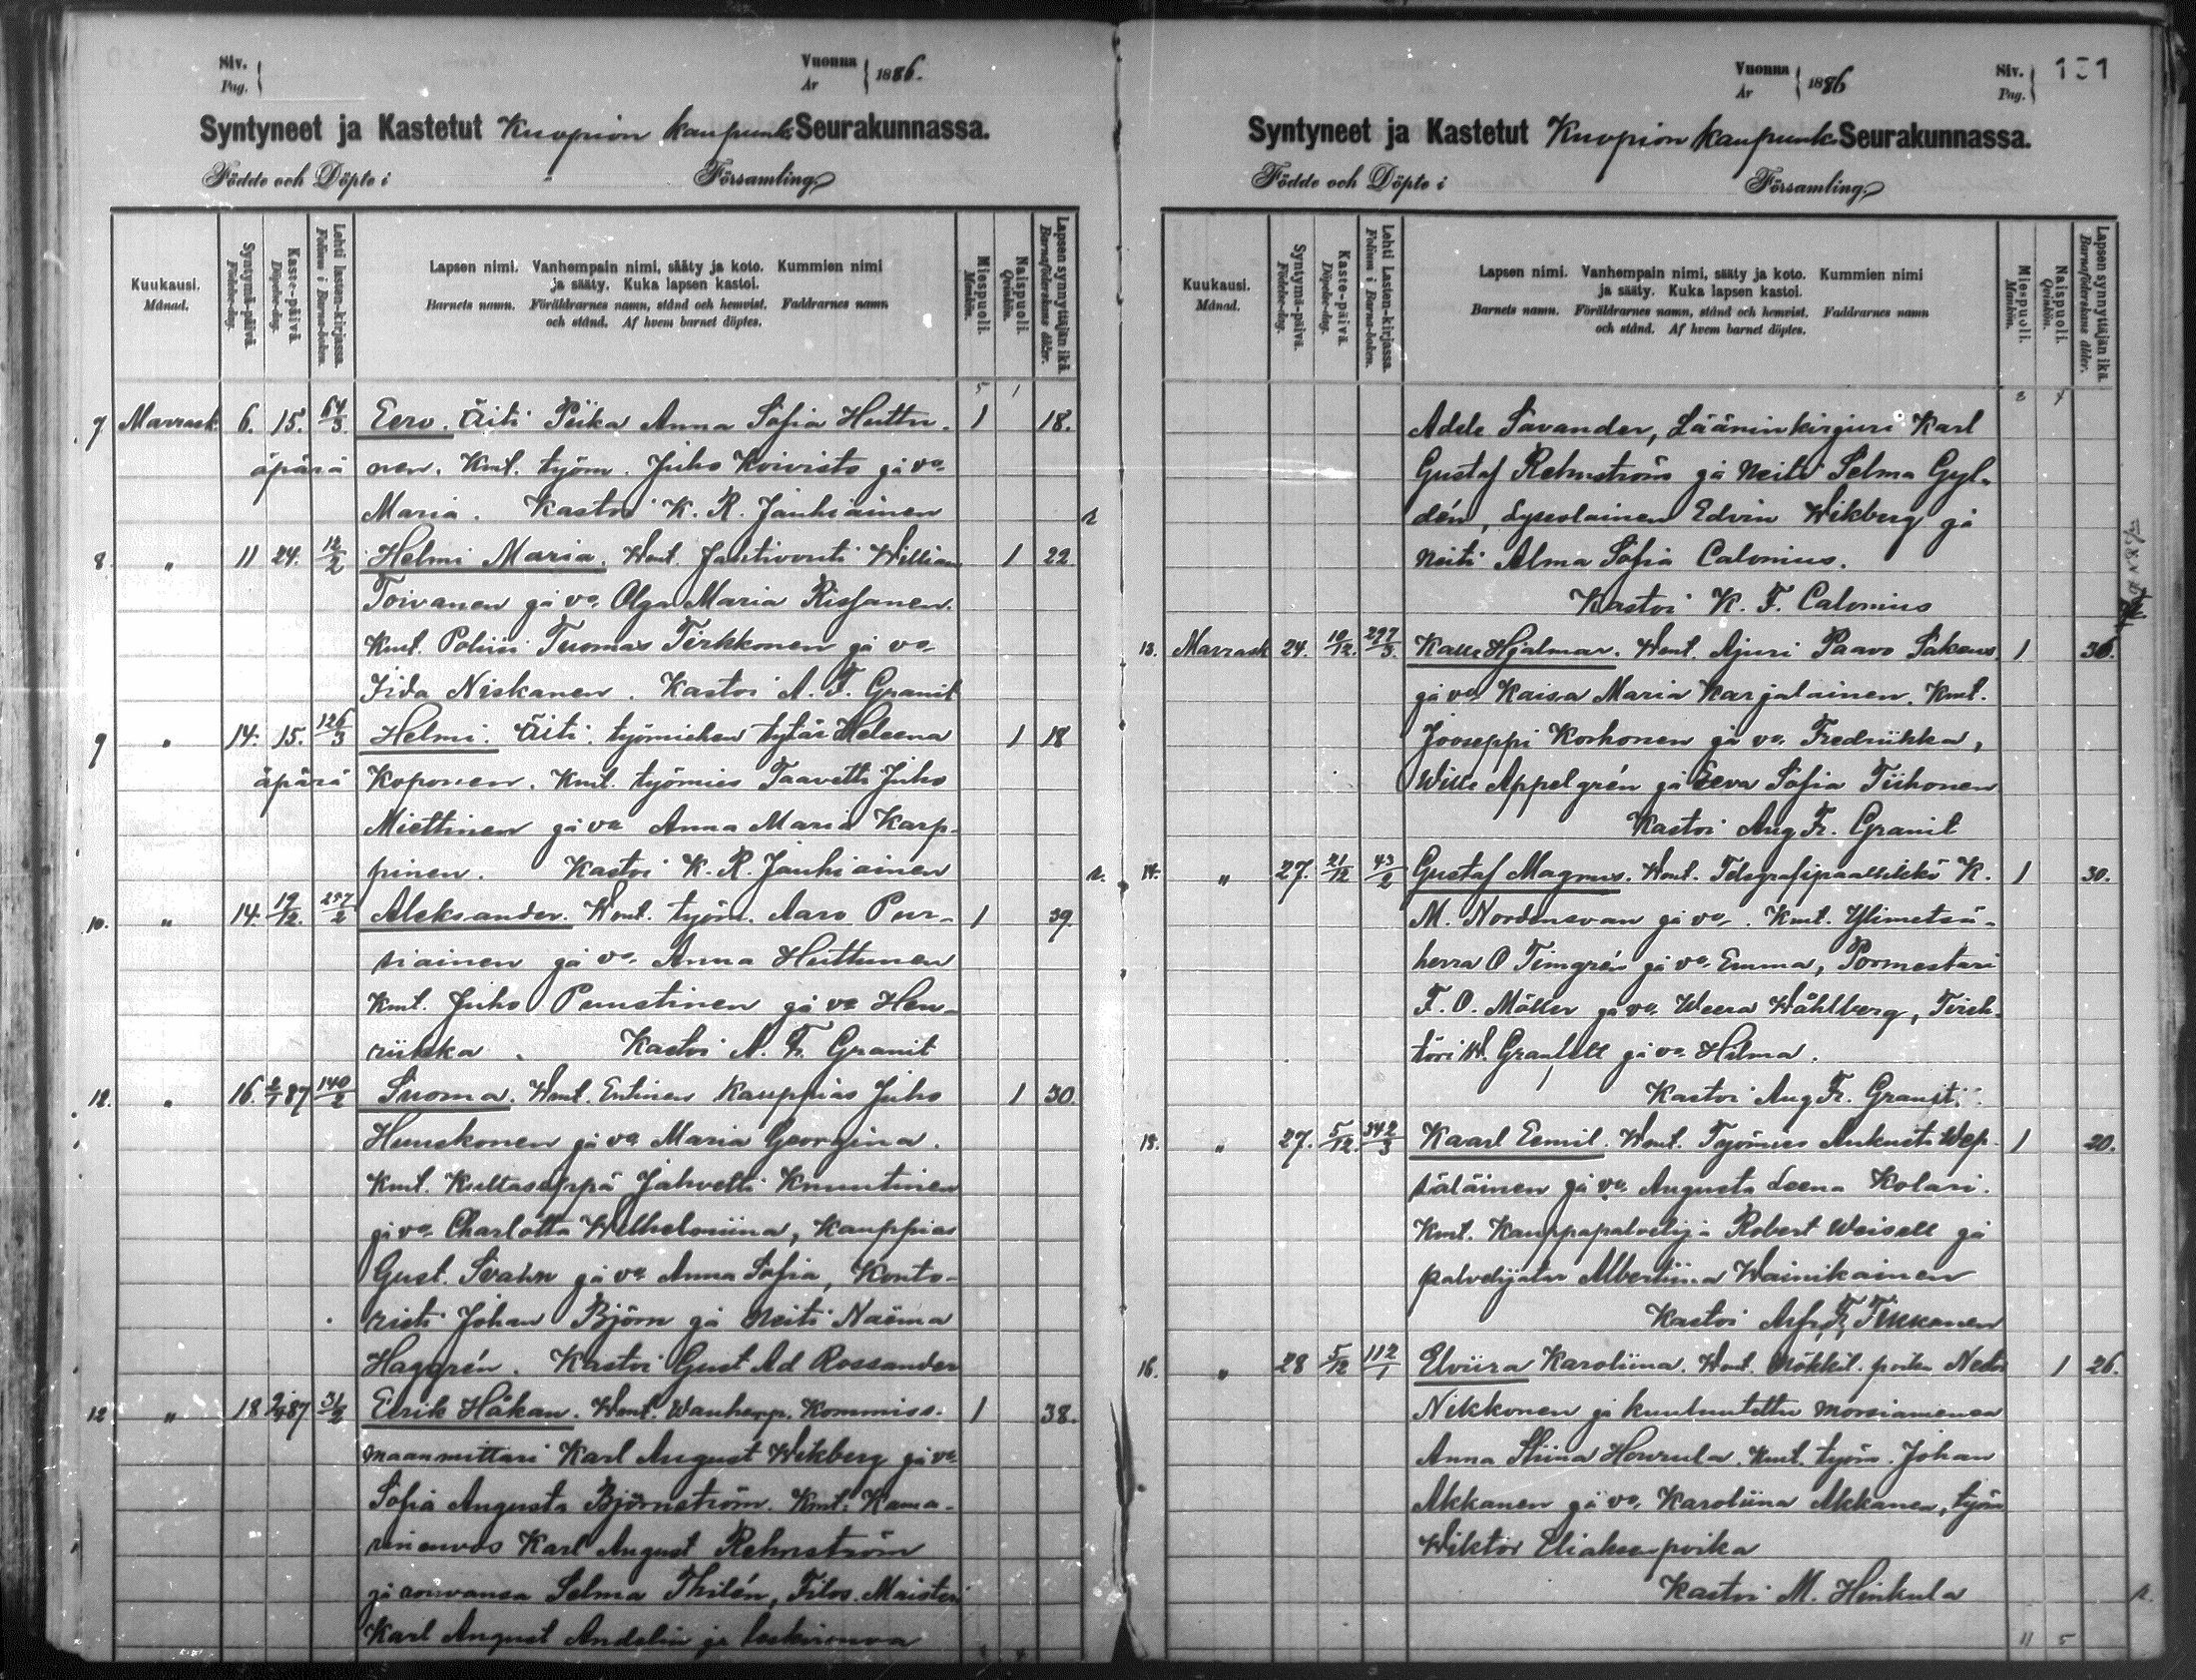 Siv.
Pag.
Vuonna
År
1886.
Syntyneet ja Kastetut Kuopion kaupunk. Seurakunnassa.
Födde och Döpte i " Församling.
Kuukausi.
Månad.
Syntymä-päivä.
Födelse-dag.
Kaste-päivä.
Döpelse-dag.
Lehti lasten-kirjassa.
Folium i Barna-boken.
Lapsen nimi. Vanhempain nimi, sääty ja koto. Kummien nimi
ja sääty. Kuka lapsen kastoi.
Barnets namn. Föräldrarnes namn, stånd och hemvist. Faddrarnes namn
och stånd. Af hvem barnet döptes.
Miespuoli.
Mankön.
Naispuoli.
Qvinkön.
Lapsen synnyttäjän ikä.
Barnaföderskans ålder.
5 1
7 Marrask. 6. 15. 64/3 Eero. Äiti Piika Anna Sofia Huttu- 1 18.
äpärä nen. Kmt. työm. Juho Koivisto ja vo.
Maria. Kastoi K. R. Jauhiainen
8. " 11 24. 12/2 Helmi Maria. Wmt. Jahtivouti William 1 22.
Toivanen ja vo. Olga Maria Rissanen.
Kmt. Poliisi Tuomas Tirkkonen ja vo.
Iida Niskanen. Kastoi A. F. Granit
9 " 14. 15. 126/3 Helmi. Äiti. työmiehen tytär Heleena 1 18
äpärä Koponen. Kmt. työmies Taavetti Juho
Miettinen ja vo Anna Maria Karp-
pinen. Kastoi K. R. Jauhiainen
10. " 14. 19/12. 297/2 Aleksander. Wmt. työm. Aaro Pur- 1 39.
siainen ja vo. Anna Huttunen
Kmt. Juho Puustinen ja vo Hen-
riikka. Kastoi A. Fr. Granit
12. " 16. 2/1 87 140/2 Suoma. Wmt. Entinen Kauppias Juho 1 30.
Huuskonen ja vo Maria Georgina.
Kmt. Kultaseppä Jahvetti Knuutinen
ja vo. Charlotta Wilhelmiina, Kauppias
Gust. Svahn ja vo Anna Sofia, Konto-
risti Johan Björn ja Neiti Naëma
Haggrén. Kastoi Gust Ad Rossander
12 " 18 87 Eerik Håkan. Wmt. Wanhemp. Kommiss. 1 38.
maanmittari Karl August Wikberg ja vo.
Sofia Augusta Björnström. Kmt. Kama-
rineuvos Karl August Rehnström
ja rouvansa Selma Thilén, Filos. Maisteri
Karl August Andelin ja leskirouva
Vuonna
År
1886
Siv.
Pag.
131
Syntyneet ja Kastetut Kuopion kaupunk. Seurakunnassa.
Födde och Döpte i Församling.
Kuukausi.
Månad.
Syntymä-päivä.
Födelse-dag.
Kaste-päivä.
Döpelse-dag.
Lehti Lasten-kirjassa.
Folium i Barna-boken.
Lapsen nimi. Vanhempain nimi, sääty ja koto. Kummien nimi
ja sääty. Kuka lapsen kastoi.
Barnets namn. Föräldrarnes namn, stånd och hemvist. Faddrarnes namn
och stånd. Af hvem barnet döptes.
Miespuoli.
Mankön.
Naispuoli.
Qvinkön.
Lapsen synnyttäjän ikä.
Barnaföderskans ålder.
Adele Savander, Läänin kirjuri Karl
Gustaf Rehnström ja Neiti Selma Gyl-
dén, Lyseolainen Edvin Wikberg ja
Neiti Alma Sofia Calonius.
Kastoi K. F. Calonius
13. Marrask 24. 10/12. 297/3. Kalle Hjalmar. Wmt. Ajuri Paavo Sakeus 1 36.
ja vo Kaisa Maria Karjalainen. Kmt.
Jooseppi Korhonen ja vo. Fredriikka,
Wille Appelgrén ja Eeva Sofia Tiihonen
Kastoi Aug Fr. Granit
14. " 27. 21/12 43/2 Gustaf Magnus. Wmt. Telegrafipäällikkö K. 1 30.
M. Nordensvan ja vo. Kmt. Ylimetsä-
herra O Timgrén ja vo. Emma, Pormestari
F. O. Möller ja vo. Weera Wåhlberg, Tireh-
töri W. Granfelt ja vo. Hilma.
Kastoi Aug Fr. Granit.
15. " 27. 5/12. 342/3 Kaarl Eemil. Wmt. Työmies Aukusti Wep- 1 20.
säläinen ja vo. Augusta Leena Kolari.
Kmt. Kauppapalvelija Robert Weisell ja
palvelijatar Albertiina Wainikainen
Kastoi Fr. Tikkanen
16. " 28 5/12 112/1 Elviira Karoliina. Wmt. Mökkil. poika Neta 1 26.
Nikkonen ja kuulutettu morsiamensa
Anna Stiina Hourula. Kmt. työm. Johan
Akkanen ja vo. Karoliina Akkanen, työm
Wiktor Eliaksenpoika
Kastoi M. Hinkula
11 5